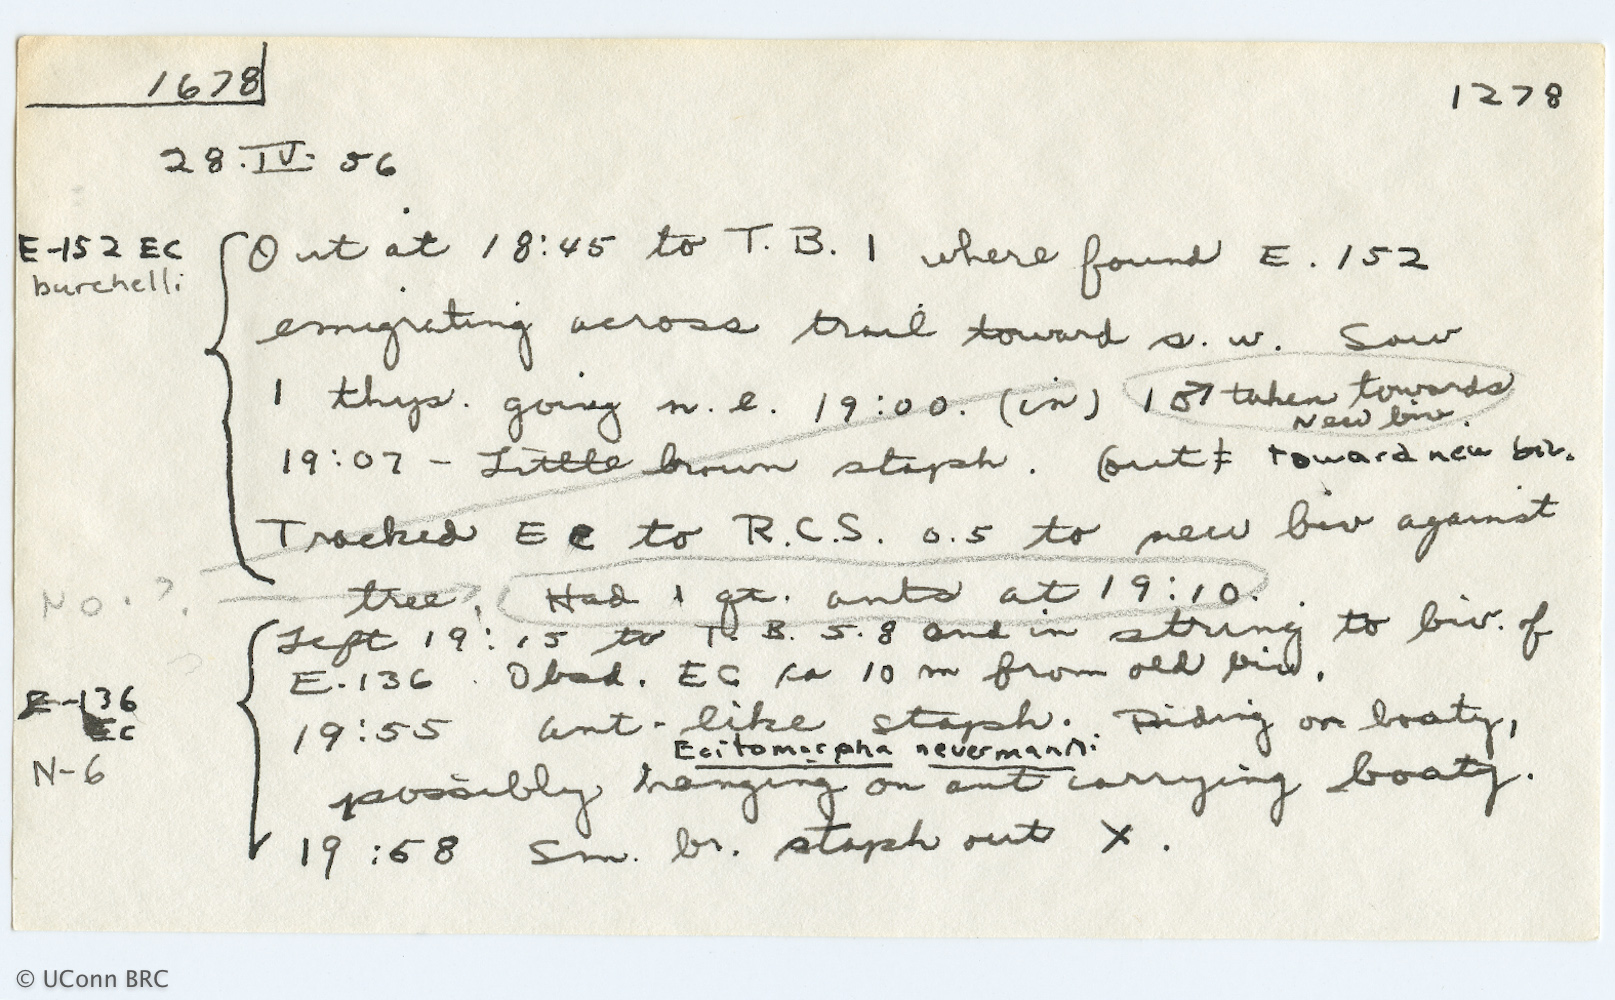 1678
1278
28.IV.56
E-152 EC
burchelli
Out at 18:45 to T.B. 1 where found E.152
emigrating across trail toward s.w. Saw
1 thys. going n.e. 19:00. (in) 1 ♂ taken towards
new biv.
19:07 - Little brown staph. (out toward new biv.
Tracked EC to R.C.S. 0.5 to new biv against
No.?
tree. Had 1 qt. ants at 19:10.
Left 19:15 to T.B. 5.8 and in string to biv. of
E.136. Obsd. EC ca 10 m from old biv.
E-136
EC
N-6
19:55 ant-like staph. Riding on booty,
Ecitomorpha nevermanni
possibly hanging on ant carrying booty.
19:58 Sm. br. staph out X.
© UConn BRC